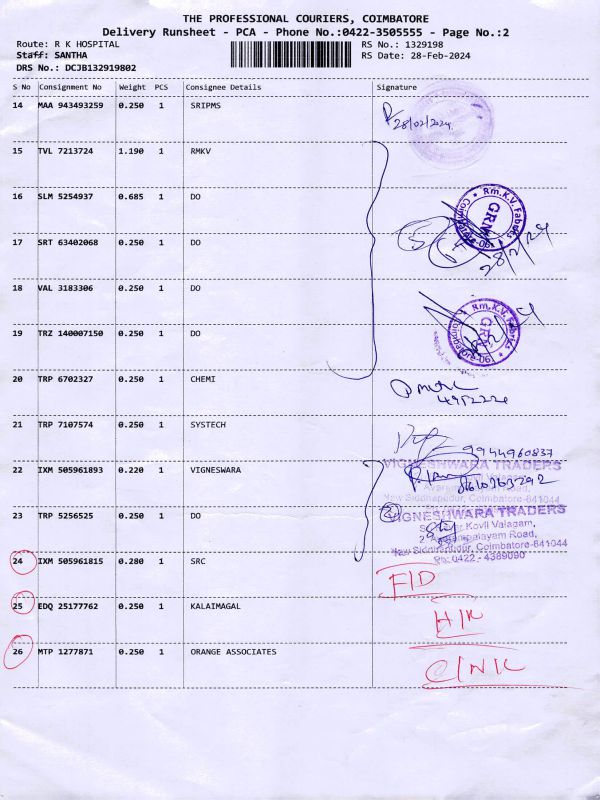 THE PROFESSIONAL COURIERS, COIMBATORE
Delivery Runsheet - PCA - Phone No.:0422-3505555 - Page No.:2
Route: R K HOSPITAL RS No.: 1329198
Staff: SANTHA RS Date: 28-Feb-2024
DRS No.: DCJB132919802
S No Consignment No Weight PCS Consignee Details Signature
14 MAA 943493259 0.250 1 SRIPMS
28/02/2024
15 TVL 7213724 1.190 1 RMKV
16 SLM 5254937 0.685 1 DO
Rm.K.V. Fabrics
GRN
17 SRT 63402068 0.250 1 DO
28/2/24
18 VAL 3183306 0.250 1 DO
Rm.K.V. Fabrics
GRN
19 TRZ 140007150 0.250 1 DO
20 TRP 6702327 0.250 1 CHEMI
21 TRP 7107574 0.250 1 SYSTECH
9944960837
22 IXM 505961893 0.220 1 VIGNESWARA
VIGNESHWARA TRADERS
New Siddhapudur, Coimbatore-641044
23 TRP 5256525 0.250 1 DO
VIGNESHWARA TRADERS
Kovil Valagam,
Road,
New Siddhapudur, Coimbatore-641044
Ph:0422 - 4389090
24 IXM 505961815 0.280 1 SRC
F/D
25 EDQ 25177762 0.250 1 KALAIMAGAL
H/K
26 MTP 1277871 0.250 1 ORANGE ASSOCIATES
C/N/C